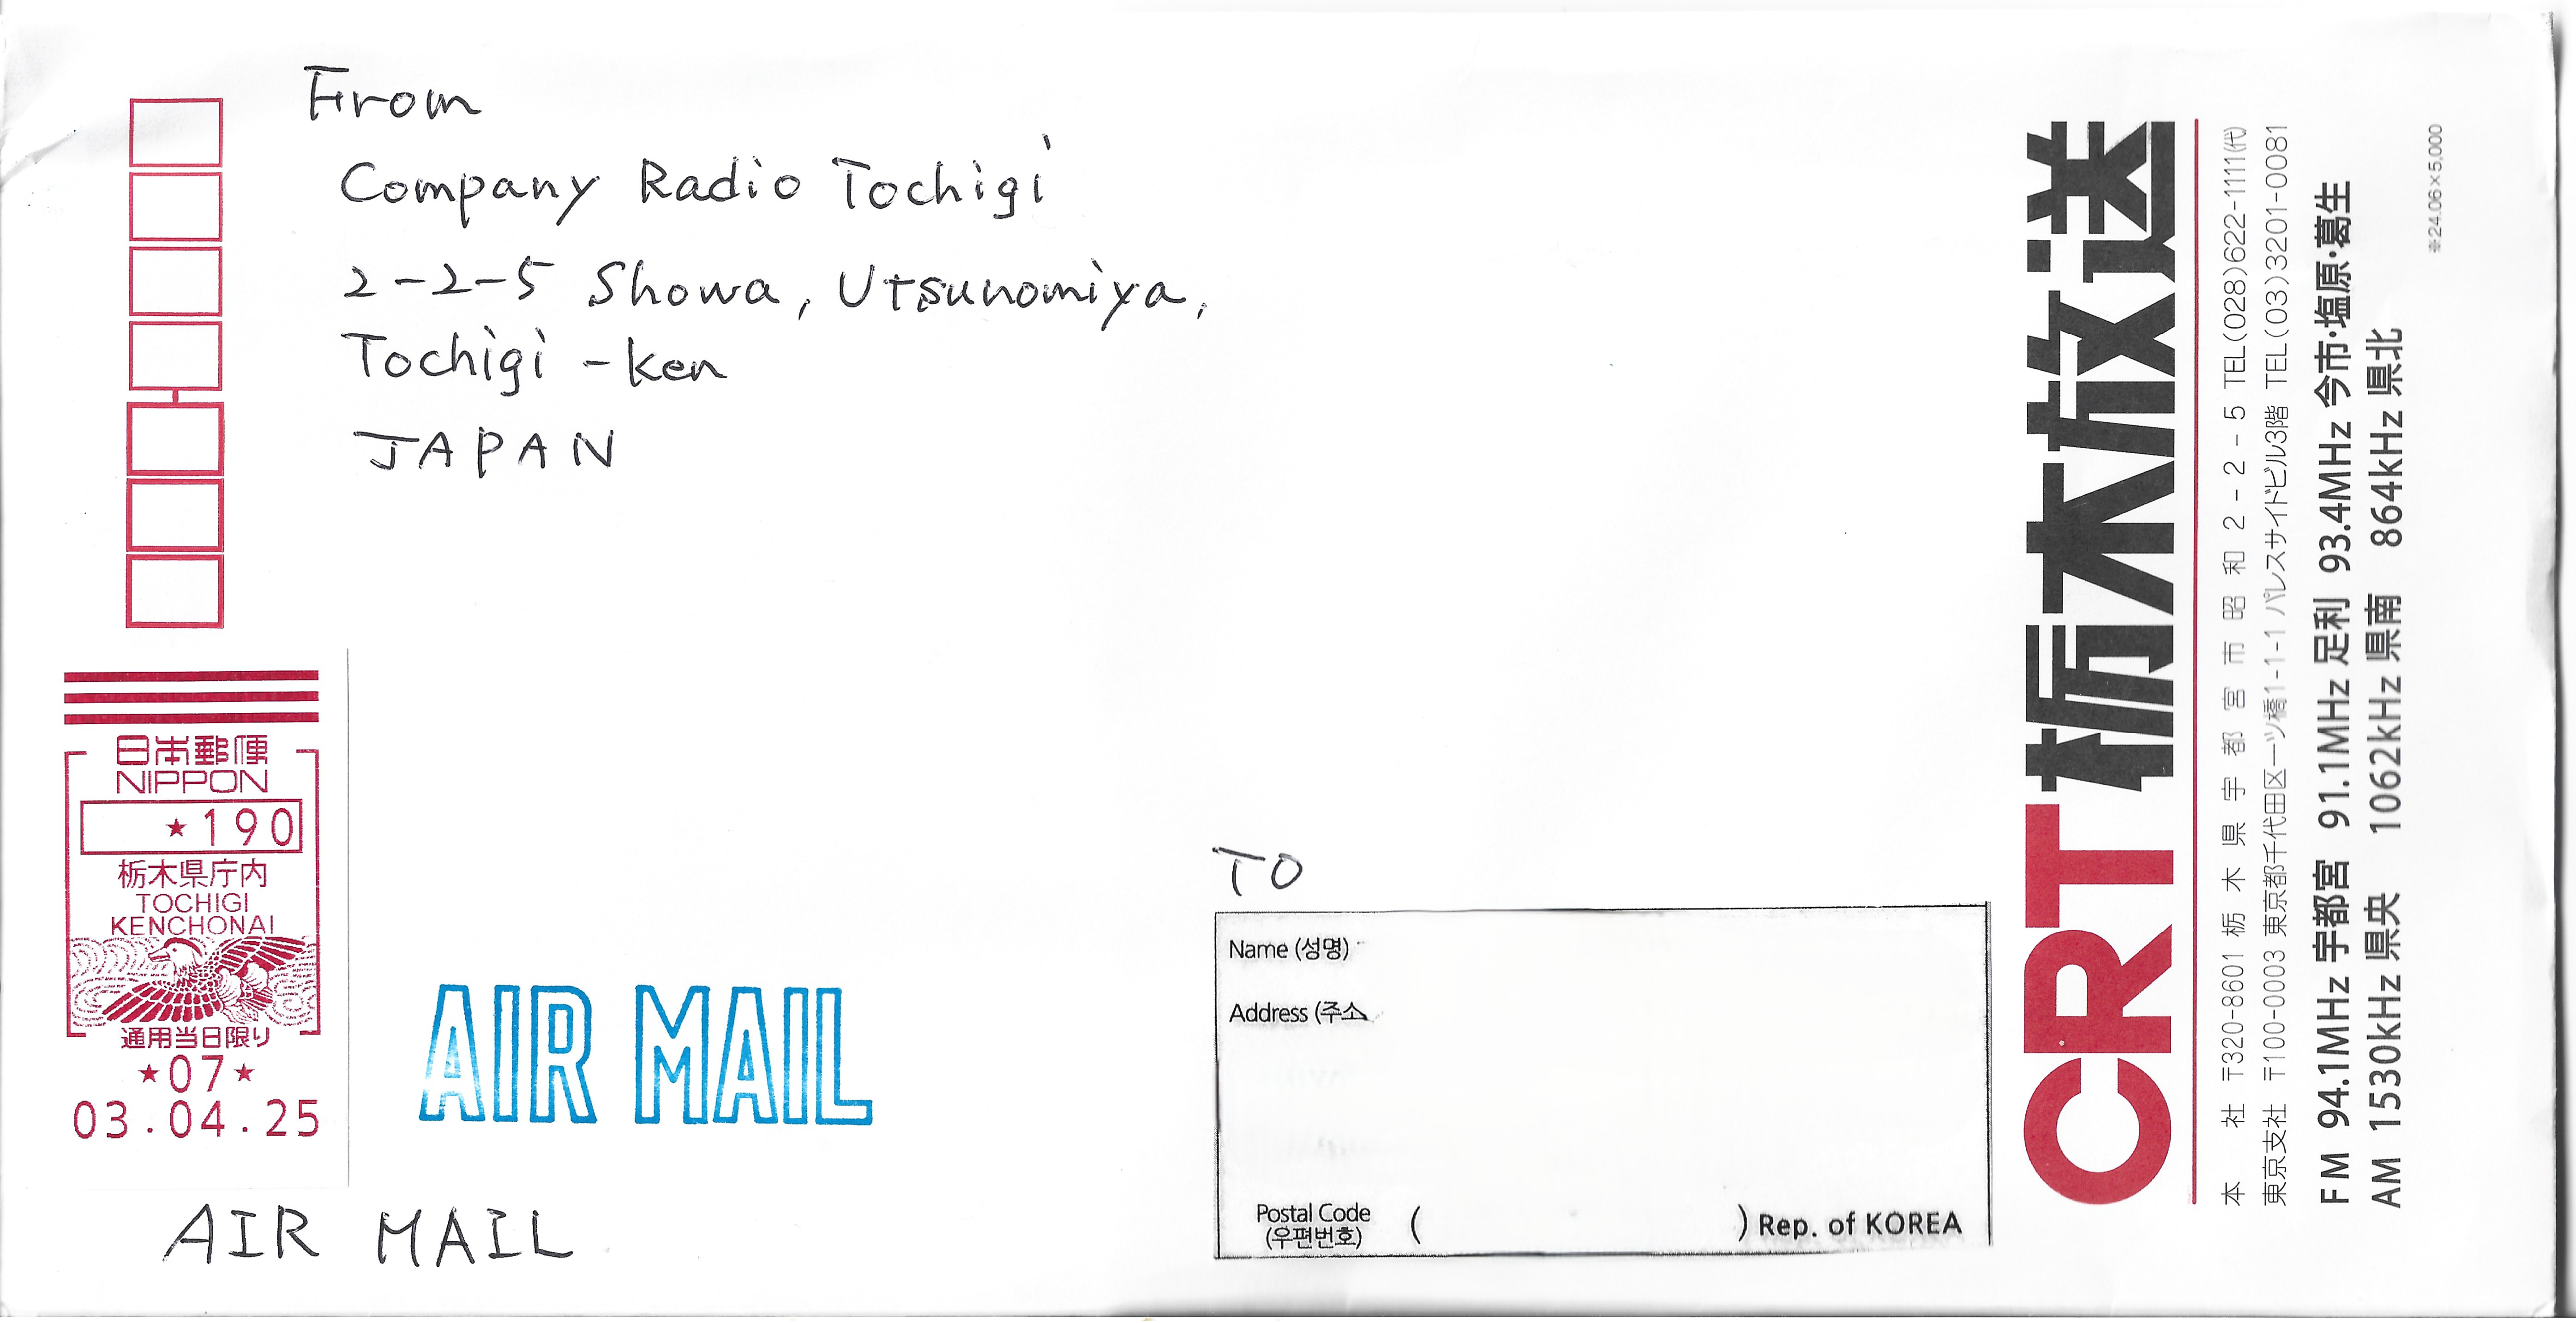 From
Company Radio Tochigi
2-2-5 Showa, Utsunomiya,
Tochigi-ken
JAPAN
日本郵便
NIPPON
★190
栃木県庁内
TOCHIGI
KENCHONAI
通用当日限り
★07★
03.04.25
AIR MAIL
AIR MAIL
TO
Name (성명)
Address (주소
Postal Code
(우편번호)
( ) Rep. of KOREA
CRT栃木放送
本 社 〒320-8601 栃木県宇都宮市昭和2-2-5 TEL(028)622-1111(代)
東京支社 〒100-0003 東京都千代田区一ツ橋1-1-1 パレスサイドビル3階 TEL(03)3201-0081
FM 94.1MHz 宇都宮 91.1MHz 足利 93.4MHz 今市・塩原・葛生
AM 1530kHz 県央 1062kHz 県南 864kHz 県北
※24.06×5,000